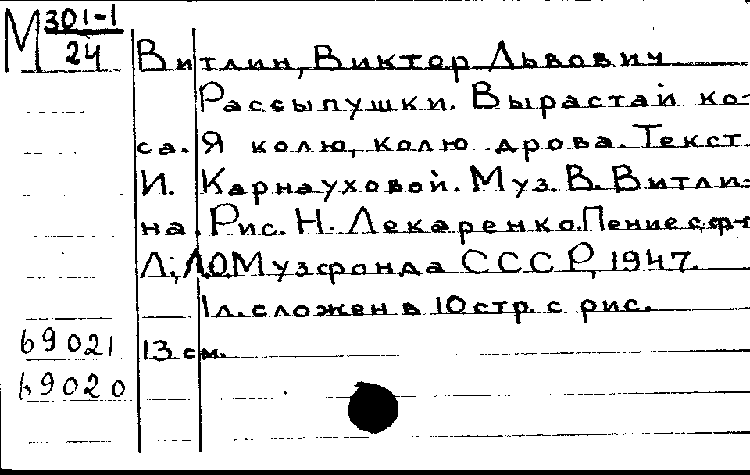 М 301-1
24
Витлин, Виктор Львович
Рассыпушки. Вырастай ко-
са. Я колю, колю дрова. Текст
И. Карнауховой. Муз. В. Витли-
на. Рис. Н. Лекаренко. Пение с ф-п
Л.; Л.О. Музфонда СССР, 1947.
1 л. сложен в 10 стр. с рис.
69021 13 см.
69020